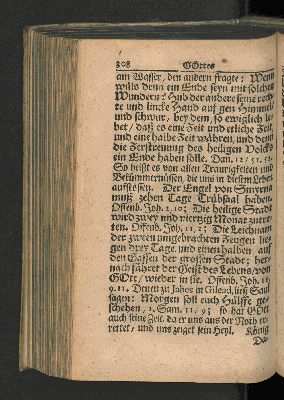 308 GOttes
am Wasser, den andern fragte: Wenn
wills denn ein Ende seyn mit solchen
Wundern? Und der andere seine rech-
te und lincke Hand auf gen Himmel
und schwur, bey dem, so ewiglich le-
bet/ daß es eine Zeit und etliche Zeit,
und eine halbe Zeit währen, und denn
die Zerstreuung des heiligen Volcks
ein Ende haben solle. Dan. 12/
So heißt es von allen Traurigkeiten und
Bekümmernüssen, die uns in diesem Leben
aufstossen. Der Engel von Smyrna
muß zehen Tage Trübsaal haben.
Offenb. Joh. Die heilige Stadt
wird zwey und viertzig Monat zutre-
ten. Offenb. Joh. 11, 2; Die Leichnam
der zween umgebrachten Zeugen lie-
gen drey Tage und einen halben auf
den Gassen der grossen Stadt; her-
nach fähret der Geist des Lebens/von
GOtt/wieder in sie. Offenb. Joh. 11,
9. 11. Denen zu Jabes in Gilead, ließ Saul
sagen: Morgen soll euch Hülffe ge-
schehen, 1. Sam. 11, 9; so hat GOtt
auch seine Zeit, da er uns aus der Noth er-
rettet, und uns zeiget sein Heyl. König
Da-